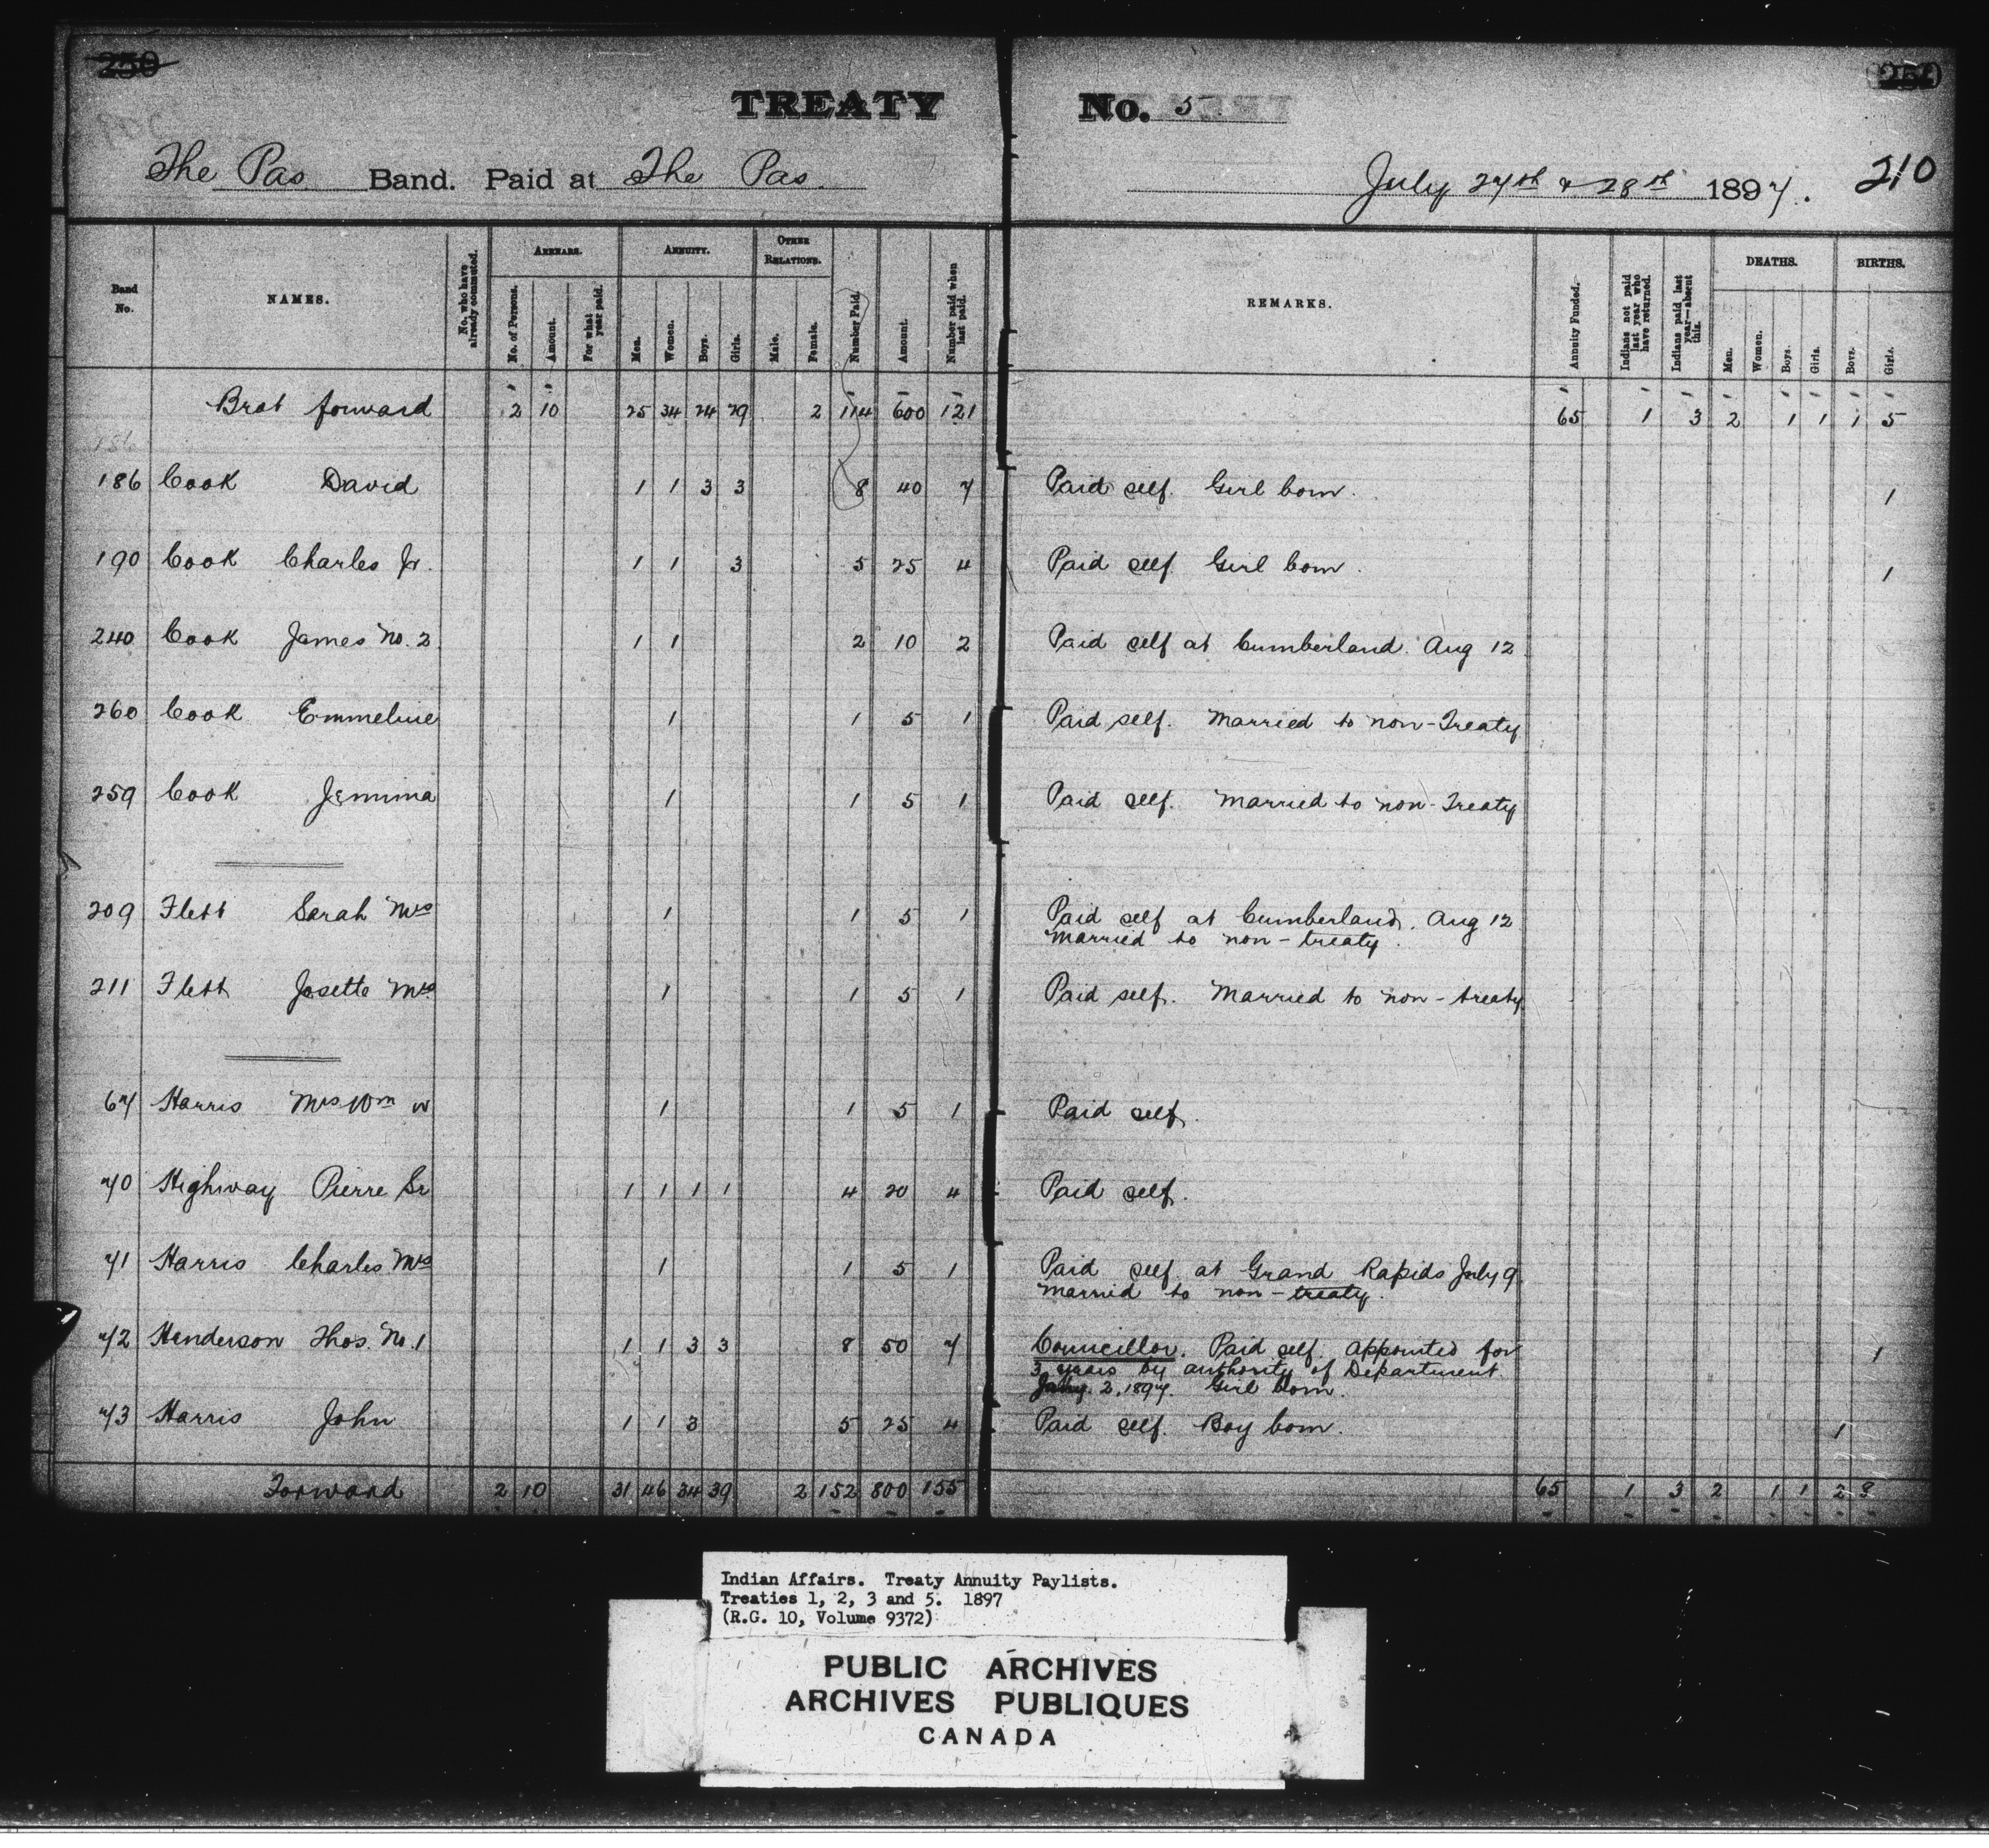 250
TREATY No. 5
The Pas Band. Paid at The Pas. July 27th & 28th 1897. 210
Band No.
NAMES.
No. who have already commuted.
ARREARS.
No. of Persons.
Amount.
For what year paid.
ANNUITY.
Men.
Women.
Boys.
Girls.
OTHER RELATIONS.
Male.
Female.
Number Paid.
Amount.
Number paid when last paid.
REMARKS.
Annuity Funded.
Indians not paid last year who have returned.
Indians paid last year—absent this.
DEATHS.
Men.
Women.
Boys.
Girls.
BIRTHS.
Boys.
Girls.
Brot forward 2 10 25 34 24 29 2 114 600 121 65 1 3 2 1 1 1 5
186
186 Cook David 1 1 3 3 8 40 7 Paid self. Girl born. 1
190 Cook Charles Jr. 1 1 3 5 25 4 Paid self. Girl born. 1
240 Cook James No. 2 1 1 2 10 2 Paid self at Cumberland. Aug 12
260 Cook Emmeline 1 1 5 1 Paid self. Married to non-Treaty
259 Cook Jemima 1 1 5 1 Paid self. Married to non-Treaty
209 Flett Sarah Mrs 1 1 5 1 Paid self at Cumberland. Aug 12
Married to non-treaty.
211 Flett Josette Mrs 1 1 5 1 Paid self. Married to non-treaty
67 Harris Mrs Wm W 1 1 5 1 Paid self.
70 Highway Pierre Sr 1 1 1 1 4 20 4 Paid self.
71 Harris Charles Mrs 1 1 5 1 Paid self at Grand Rapids July 9
Married to non-treaty.
72 Henderson Thos. No. 1 1 1 3 3 8 50 7 Councillor. Paid self. Appointed for 1
3 years by authority of Department
2, 1897. Girl born.
73 Harris John 1 1 3 5 25 4 Paid self. Boy born. 1
Forward 2 10 31 46 34 39 2 152 800 155 65 1 3 2 1 1 2 8
Indian Affairs. Treaty Annuity Paylists.
Treaties 1, 2, 3 and 5. 1897
(R.G. 10, Volume 9372)
PUBLIC ARCHIVES
ARCHIVES PUBLIQUES
CANADA